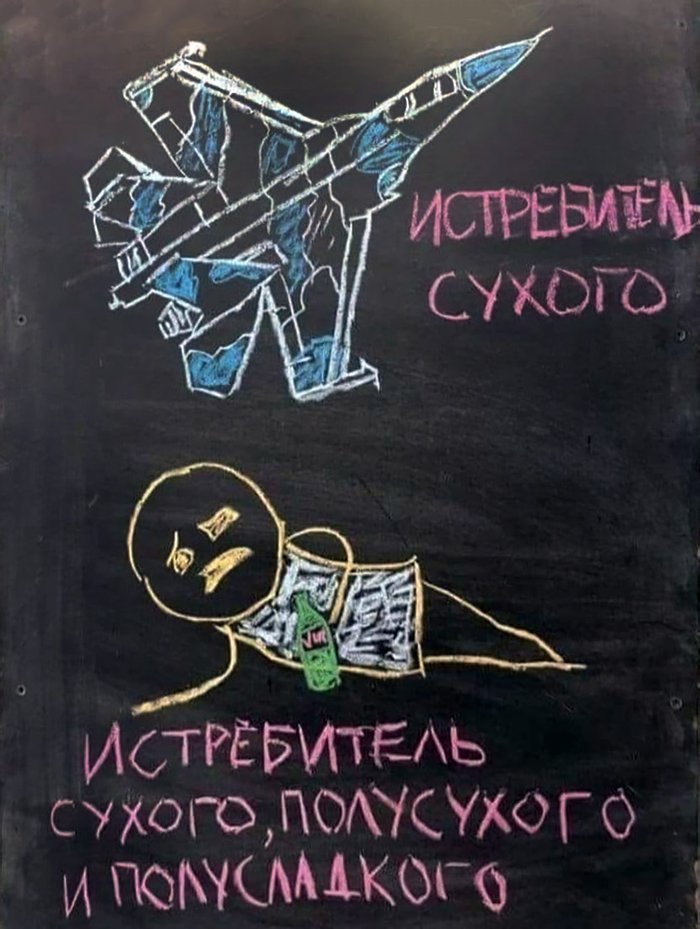 ИСТРЕБИТЕЛЬ
СУХОГО
ИСТРЕБИТЕЛЬ
СУХОГО, ПОЛУСУХОГО
И ПОЛУСЛАДКОГО